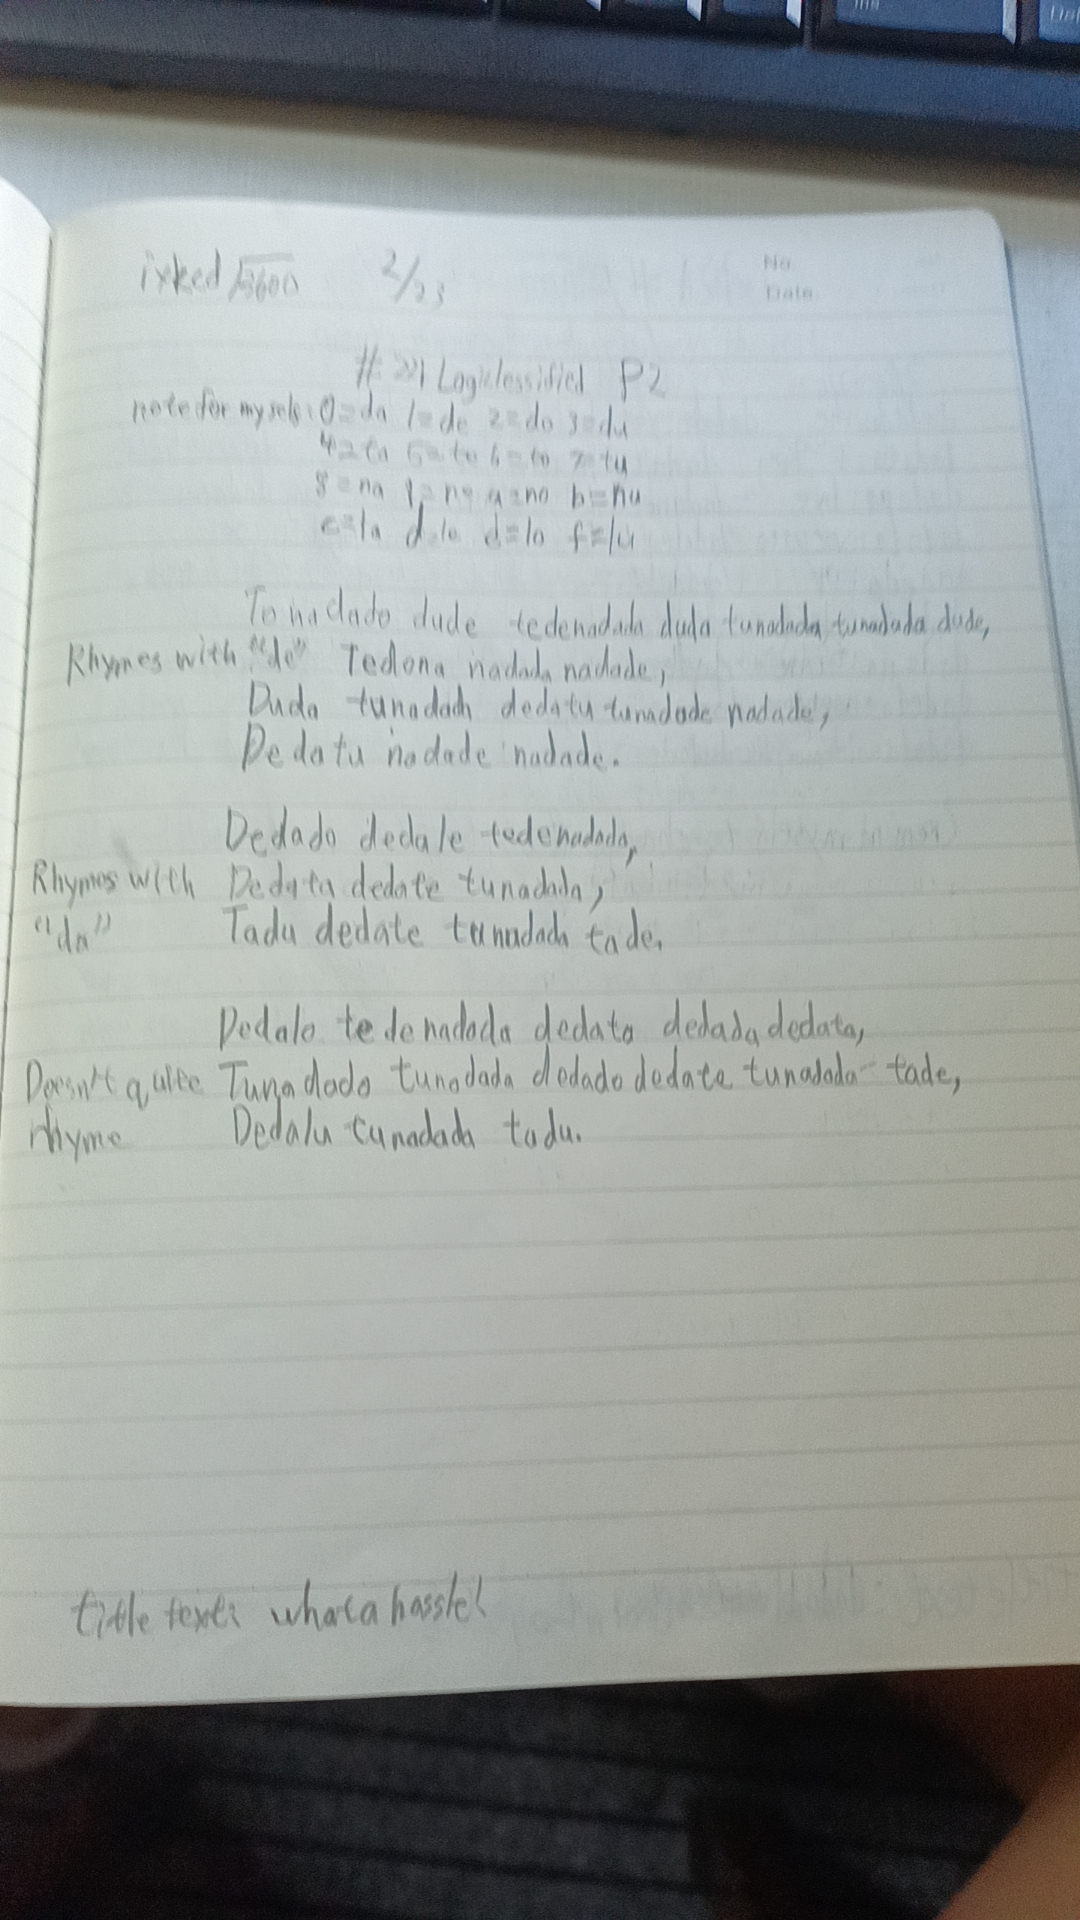 ixked √3600 2/23
No.
Date
# 221 Logiclessified P2
note for myself: 0=da 1=de 2=do 3=du
4=ta 5=te 6=to 7=tu
8=na 9=ne a=no b=nu
c=la d=le e=lo f=lu
Tonadado dude tedenadada duda tunadada tunadada dude,
Rhymes with "de" Tedona nadada nadade,
Duda tunadada dedatu tunadade nadade,
Dedatu nadade nadade.
Dedado dedale tedenadada,
Rhymes with Dedata dedate tunadada,
"da" Tadu dedate tunadada tade.
Dedalo tedenadada dedato dedada dedata,
Doesn't quite Tunadado tunadada dedado dedate tunadada tade,
rhyme Dedalu tunadada tadu.
title text: what a hassle!